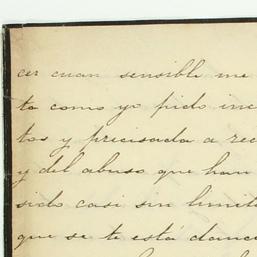 cer cuan sensible me
ta como yo pido inc
tos y precisada a rec
y del abuso que han
sido casi sin limit
que se te está danc